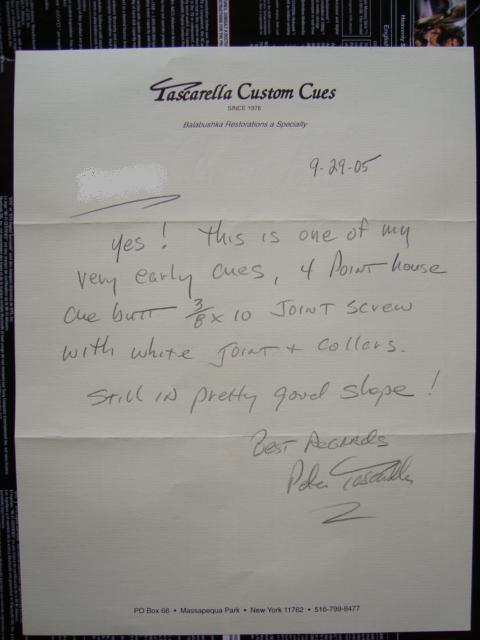 Tascarella Custom Cues
SINCE 1976
Balabushka Restorations a Specialty
9-29-05
Yes! This is one of my
very early cues, 4 Point house
cue butt 3/8 x 10 Joint screw
with white Joint + collars.
Still in pretty good shape!
Best Regards
Pete Tascarella
PO Box 66 • Massapequa Park • New York 11762 • 516-799-8477